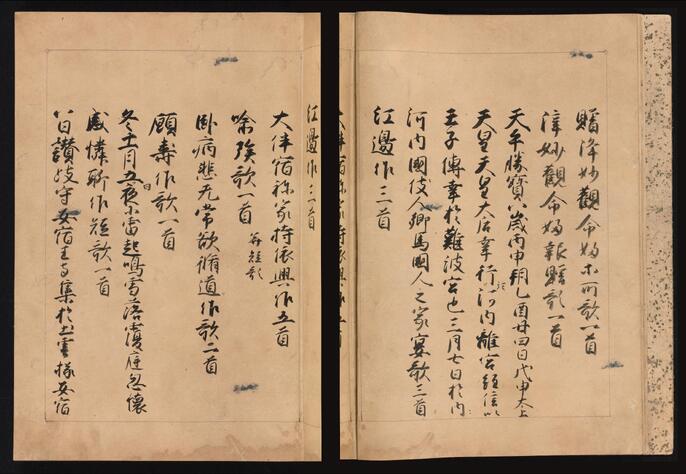 贈薩妙觀命婦等所歌一首
薩妙觀命婦報贈歌一首
天平勝寶八歳丙申朔乙酉廿四日戊申太上
天皇天皇大后幸行於河内離宮經信以
壬子傳幸於難波宮也三月七日於内
河内國伎人郷馬國人之家宴歌三首
江邊作三首
大伴宿祢家持依興作五首
江邊作三首
大伴宿祢家持依興作五首
喩族歌一首 并短歌
臥病悲无常欲脩道作歌一首
願壽作歌一首
冬十一月五日夜小雷起鳴雪落覆庭忽懷
感憐聊作短歌一首
八日讃岐守安宿王等集於出雲掾安宿